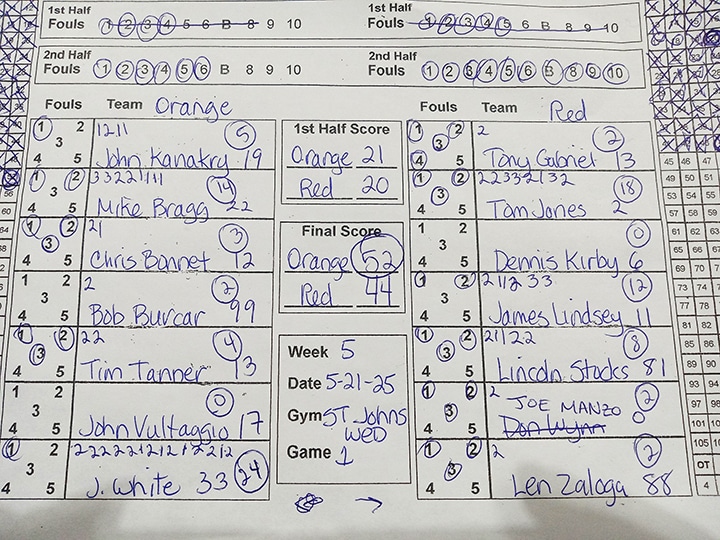 1st Half
Fouls 1 2 3 4 5 6 B 8 9 10
1st Half
Fouls 1 2 3 4 5 6 B 8 9 10
2nd Half
Fouls 1 2 3 4 5 6 B 8 9 10
2nd Half
Fouls 1 2 3 4 5 6 B 8 9 10
Fouls Team Orange
1 2 3 4 5
1211 5
John Kanakry 19
1 2 3 4 5
33221111 14
Mike Bragg 22
1 2 3 4 5
21 3
Chris Bonnet 12
1 2 3 4 5
2 2
Bob Burcar 99
1 2 3 4 5
22 4
Tim Tanner 13
1 2 3 4 5
0
John Vultaggio 17
1 2 3 4 5
J. White 33 24
1st Half Score
Orange 21
Red 20
Final Score
Orange 52
Red 44
Week 5
Date 5-21-25
Gym ST Johns
WED
Game 1
Fouls Team Red
1 2 3 4 5
2 2
Tony Gabriel 13
1 2 3 4 5
22332132 18
Tom Jones 2
1 2 3 4 5
0
Dennis Kirby 6
1 2 3 4 5
2112 33 12
James Lindsey 11
1 2 3 4 5
21122 8
Lincoln Stocks 81
1 2 3 4 5
2 JOE MANZO 2
Don Wynn 0
1 2 3 4 5
2 2
Len Zaloga 88
45 46 47
49 50 51
53 54 55
57 58 59
61 62 63
65 66 67
69 70
73 74
77 78
81 82
85 86
89 90
93 94
97 98
101
105
OT
4